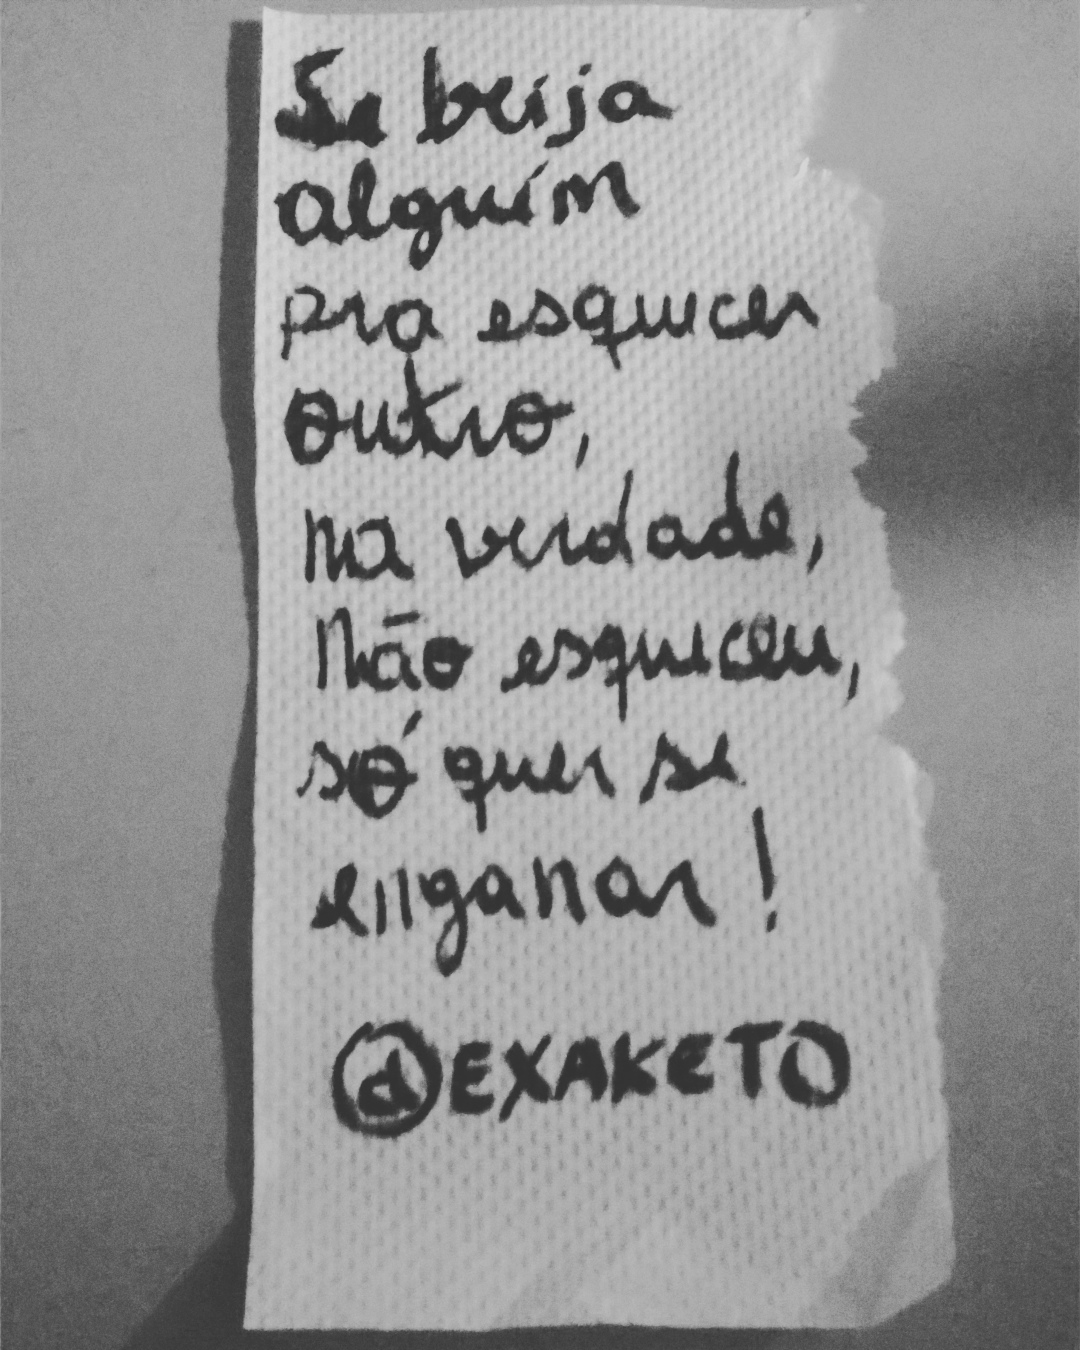 Se beija
alguém
pra esquecer
outro,
na verdade,
não esqueceu,
só quer se
enganar!
@EXAKETO